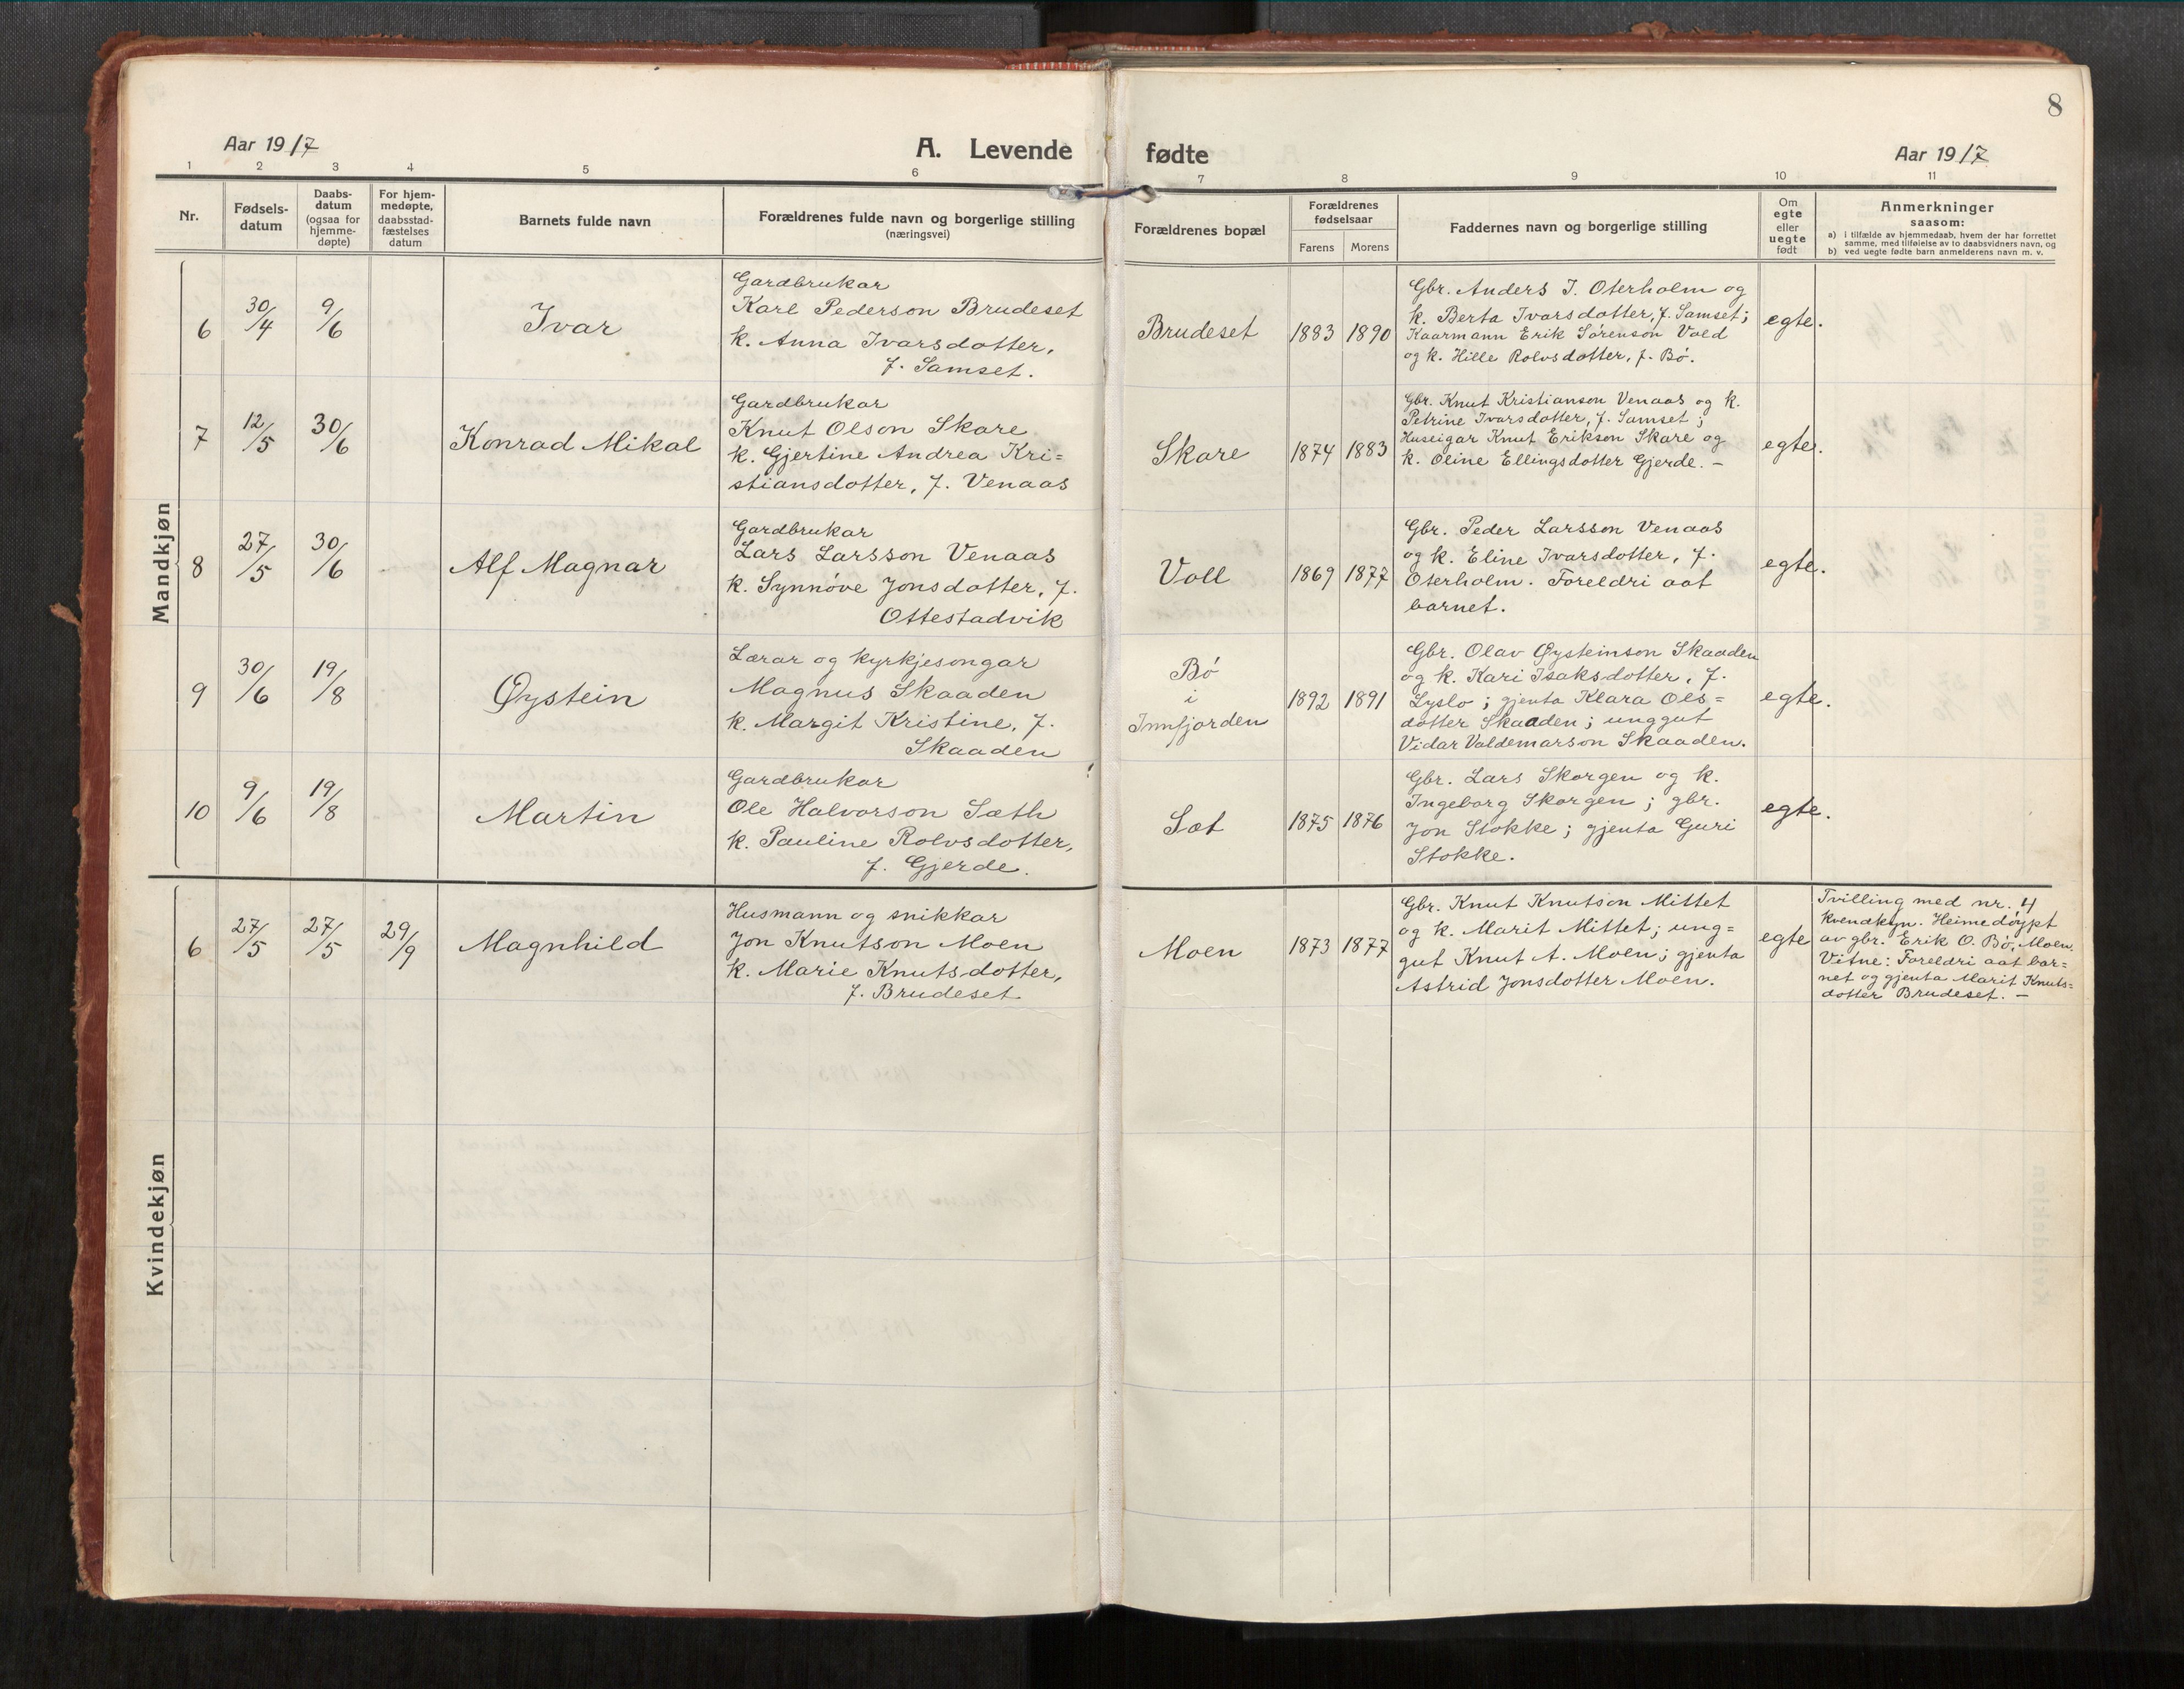 8
Aar 1917
A. Levende
fødte
Aar 1917
1 2 3 4 5 6 7 8 9 10 11
Nr.
Fødsels-
datum
Daabs-
datum
(ogsaa for
hjemme-
døpte)
For hjem-
medøpte,
daabsstad-
fæstelses
datum
Barnets fulde navn
Forældrenes fulde navn og borgerlige stilling
(næringsvei)
Forældrenes bopæl
Forældrenes
fødselsaar
Farens Morens
Faddernes navn og borgerlige stilling
Om
egte
eller
uegte
født
Anmerkninger
saasom:
a) i tilfælde av hjemmedaab, hvem der har forrettet
samme, med tilføielse av to daabsvidners navn, og
b) ved uegte fødte barn anmelderens navn m. v.
Mandkjøn
6
30/4
9/6
Ivar
Gardbrukar
Karl Pederson Brudeset
k. Anna Ivarsdotter,
f. Samset.
Brudeset
1883 1890
Gbr. Anders I. Oterholm og
k. Berta Ivarsdotter, f. Samset;
Kaarmann Erik Sørenson Vold
og k. Hille Rolvsdotter, f. Bø.
egte.
7
12/5
30/6
Konrad Mikal
Gardbrukar
Knut Olson Skare
k. Gjertine Andrea Kri=
stiansdotter, f. Venaas
Skare
1874 1883
Gbr. Knut Kristianson Venaas og k.
Petrine Ivarsdotter, f. Samset;
Huseigar Knut Erikson Skare og
k. Oline Ellingsdotter Gjerde. –
egte.
8
27/5
30/6
Alf Magnar
Gardbrukar
Lars Larsson Venaas
k. Synnøve Jonsdotter, f.
Ottestadvik
Voll
1869 1877
Gbr. Peder Larsson Venaas
og k. Eline Ivarsdotter, f.
Oterholm. Foreldri aat
barnet.
egte.
9
30/6
19/8
Øystein
Lærar og kyrkjesongar
Magnus Skaaden
k. Margit Kristine, f.
Skaaden
Bø
i
Innfjorden
1892 1891
Gbr. Olav Øysteinson Skaaden
og k. Kari Isaksdotter, f.
Lyslo; gjenta Klara Ols=
dotter Skaaden; unggut
Vidar Valdemarson Skaaden.
egte.
10
9/6
19/8
Martin
Gardbrukar
Ole Halvorson Sæth
k. Pauline Rolvsdotter,
f. Gjerde.
Sæt
1875 1876
Gbr. Lars Skorgen og k.
Ingeborg Skorgen; gbr.
Jon Stokke; gjenta Guri
Stokke.
egte.
Kvindekjøn
6
27/5
27/5
29/9
Magnhild
Husmann og snikkar
Jon Knutson Moen
k. Marie Knutsdotter,
f. Brudeset
Moen
1873 1877
Gbr. Knut Knutson Mittet
og k. Marit Mittet; ung=
gut Knut A. Moen; gjenta
Astrid Jonsdotter Moen.
egte
Tvilling med nr. 4
kvendkyn. Heimedøypt
av gbr. Erik O. Bø, Moen.
Vitne: Foreldri aat bar=
net og gjenta Marit Knuts=
dotter Brudeset. –